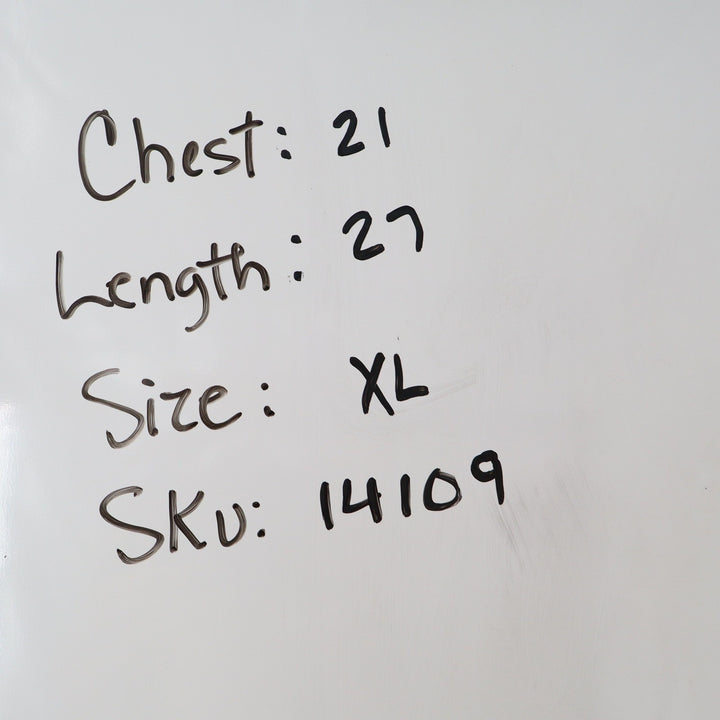 Chest: 21
Length: 27
Size: XL
SKU: 14109